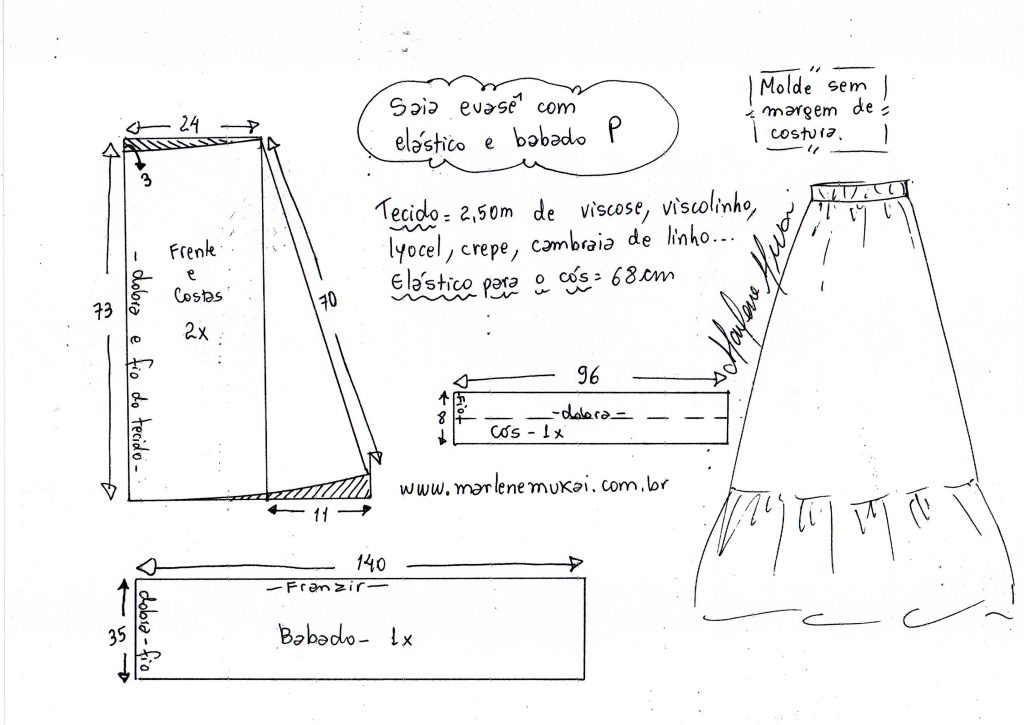 Saia evasê com
elástico e babado P
Molde sem
margem de
costura.
Tecido = 2,50m de viscose, viscolinho,
lyocel, crepe, cambraia de linho...
Elástico para o cós = 68cm
24
3
73
- dobra e fio do tecido -
Frente
e
Costas
2x
70
11
96
8
Fio
- dobra =
Cós - 1x
Marlene Mukai
www.marlenemukai.com.br
140
- Franzir -
35
dobra - fio
Babado - 1x